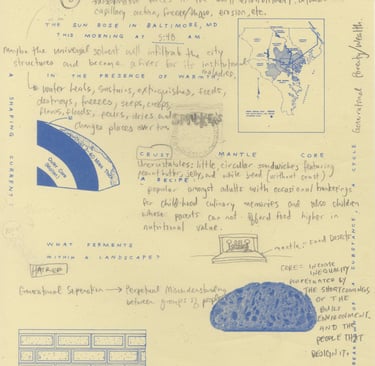 capillary action, freeze/thaw, erosion, etc.
THE SUN ROSE IN BALTIMORE, MD
THIS MORNING AT 5:48 AM.
Maybe the universal solvent will infiltrate the city
structures and become a fixer for its institutional
maladies.
IN THE PRESENCE OF WARMTH
water heats, sustains, extinguishes, feeds,
destroys, freezes, seeps, creeps,
flows, floods, pours, dries and
changes places over time
A SHAPING CURRENT:
Generational Poverty/Wealth
A CYCLE
SUBSTANCE,
SMUCKER'S
CRUST MANTLE CORE
Uncrustables: little circular sandwiches featuring
peanut butter, jelly, and white bread (without crust)
A RECIPE:
popular amongst adults with occasional hankerings
for childhood culinary memories and also children
whose parents can not afford food higher in
nutritional value.
Outer Core
mantle = Food Deserts
WHAT FERMENTS
WITHIN A LANDSCAPE?
HATRED
Generational Separation → Perpetual Misunderstanding
between groups of people
CORE = INCOME
INEQUALITY
PERPETUATED BY
THE SHORTCOMINGS
OF THE
BUILT
ENVIRONMENT
AND THE
PEOPLE THAT
DESIGN IT.